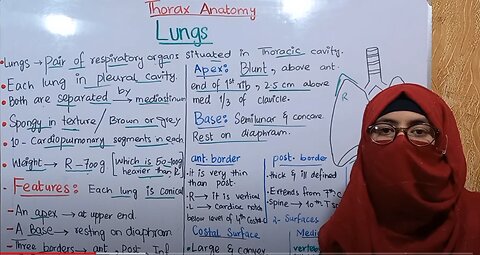 Thorax Anatomy
Lungs
• Lungs → Pair of respiratory organs situated in Thoracic cavity.
• Each lung in pleural cavity.
• Both are separated by mediastinum
• Spongy in texture / Brown or grey
• 10 - Cardiopulmonary segments in each
• Weight → R - 700g which is 50-100g heavier than R
- Features: Each lung is conical
- An apex → at upper end.
- A Base → resting on diaphragm
- Three borders → ant, Post, Inf
Apex: Blunt, above ant.
end of 1st rib, 2.5 cm above
med 1/3 of clavicle.
Base: Semilunar & concave
Rest on diaphragm.
ant border
- it is very thin
than post.
R → it is vertical
L → Cardiac notch
below level of 4th Costal
Costal Surface
• Large & convex
post. border
thick & ill defined
Extends from 7th C
Spine → 10th T
2- Surfaces
Med
verteb
R